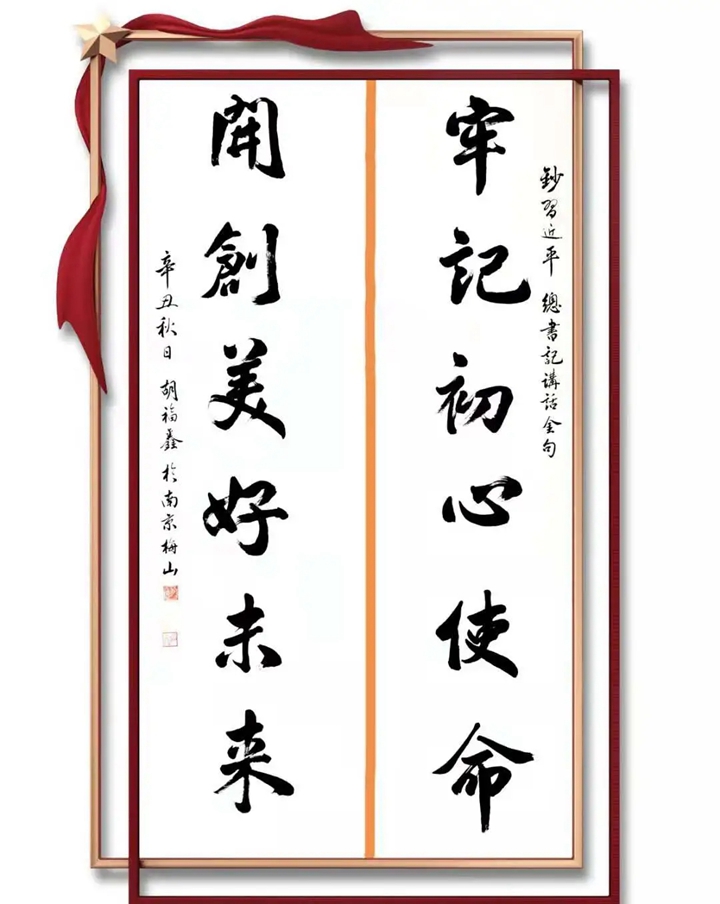 鈔習近平 總書記講話金句
牢記初心使命
開創美好未来
辛丑秋日 胡福鑫於南京梅山